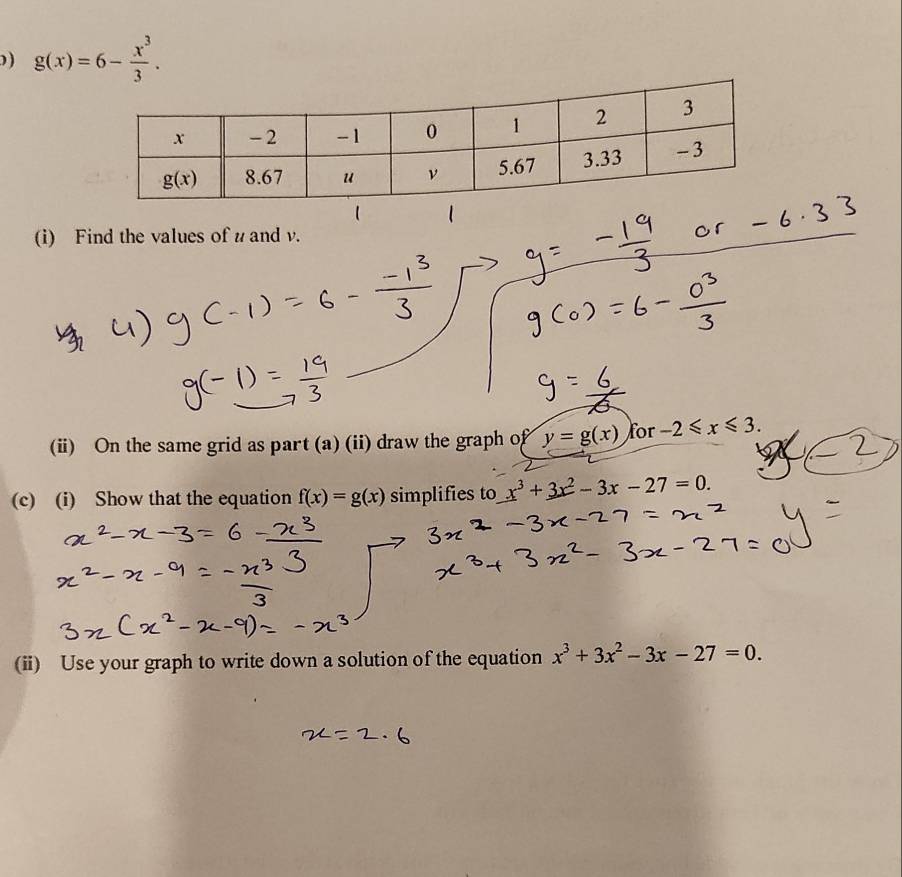 ) g(x) = 6 − x³/3 .
x −2 −1 0 1 2 3
g(x) 8.67 u v 5.67 3.33 −3
(i) Find the values of u and v.
u) g(-1) = 6 - -1³/3
g(-1) = 19/3
g = -19/3 or -6.33
g(0) = 6 - 0³/3
g = 6
(ii) On the same grid as part (a) (ii) draw the graph of y = g(x) for −2 ⩽ x ⩽ 3.
-2
(c) (i) Show that the equation f(x) = g(x) simplifies to x³ + 3x² − 3x − 27 = 0.
x² - x - 3 = 6 - x³/3
x² - x - 9 = -x³/3
3x(x² - x - 9) = -x³
3x² - 3x - 27 = x²
x³ + 3x² - 3x - 27 = 0
y =
(ii) Use your graph to write down a solution of the equation x³ + 3x² − 3x − 27 = 0.
x = 2.6